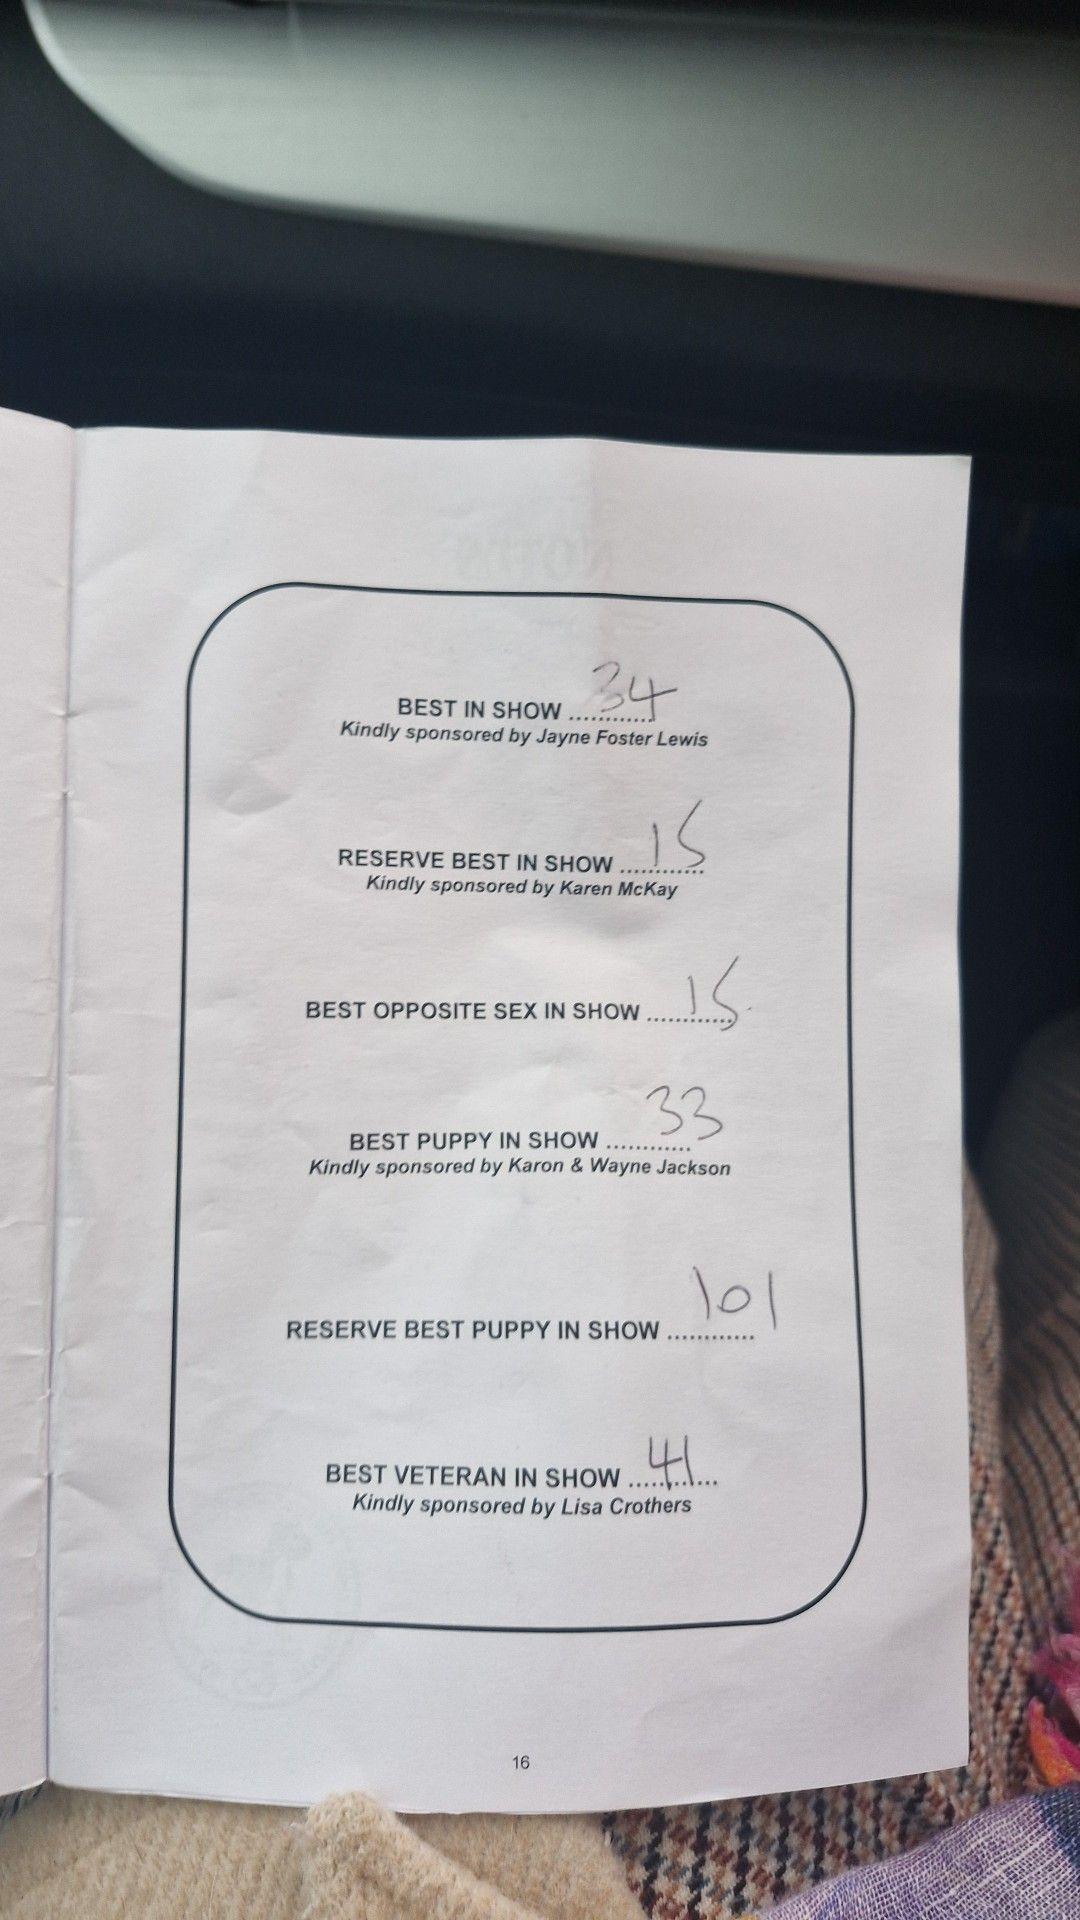 BEST IN SHOW ............ 34
Kindly sponsored by Jayne Foster Lewis
RESERVE BEST IN SHOW ............ 15
Kindly sponsored by Karen McKay
BEST OPPOSITE SEX IN SHOW ............ 15
BEST PUPPY IN SHOW ............ 33
Kindly sponsored by Karon & Wayne Jackson
RESERVE BEST PUPPY IN SHOW ............ 101
BEST VETERAN IN SHOW ............ 41
Kindly sponsored by Lisa Crothers
16